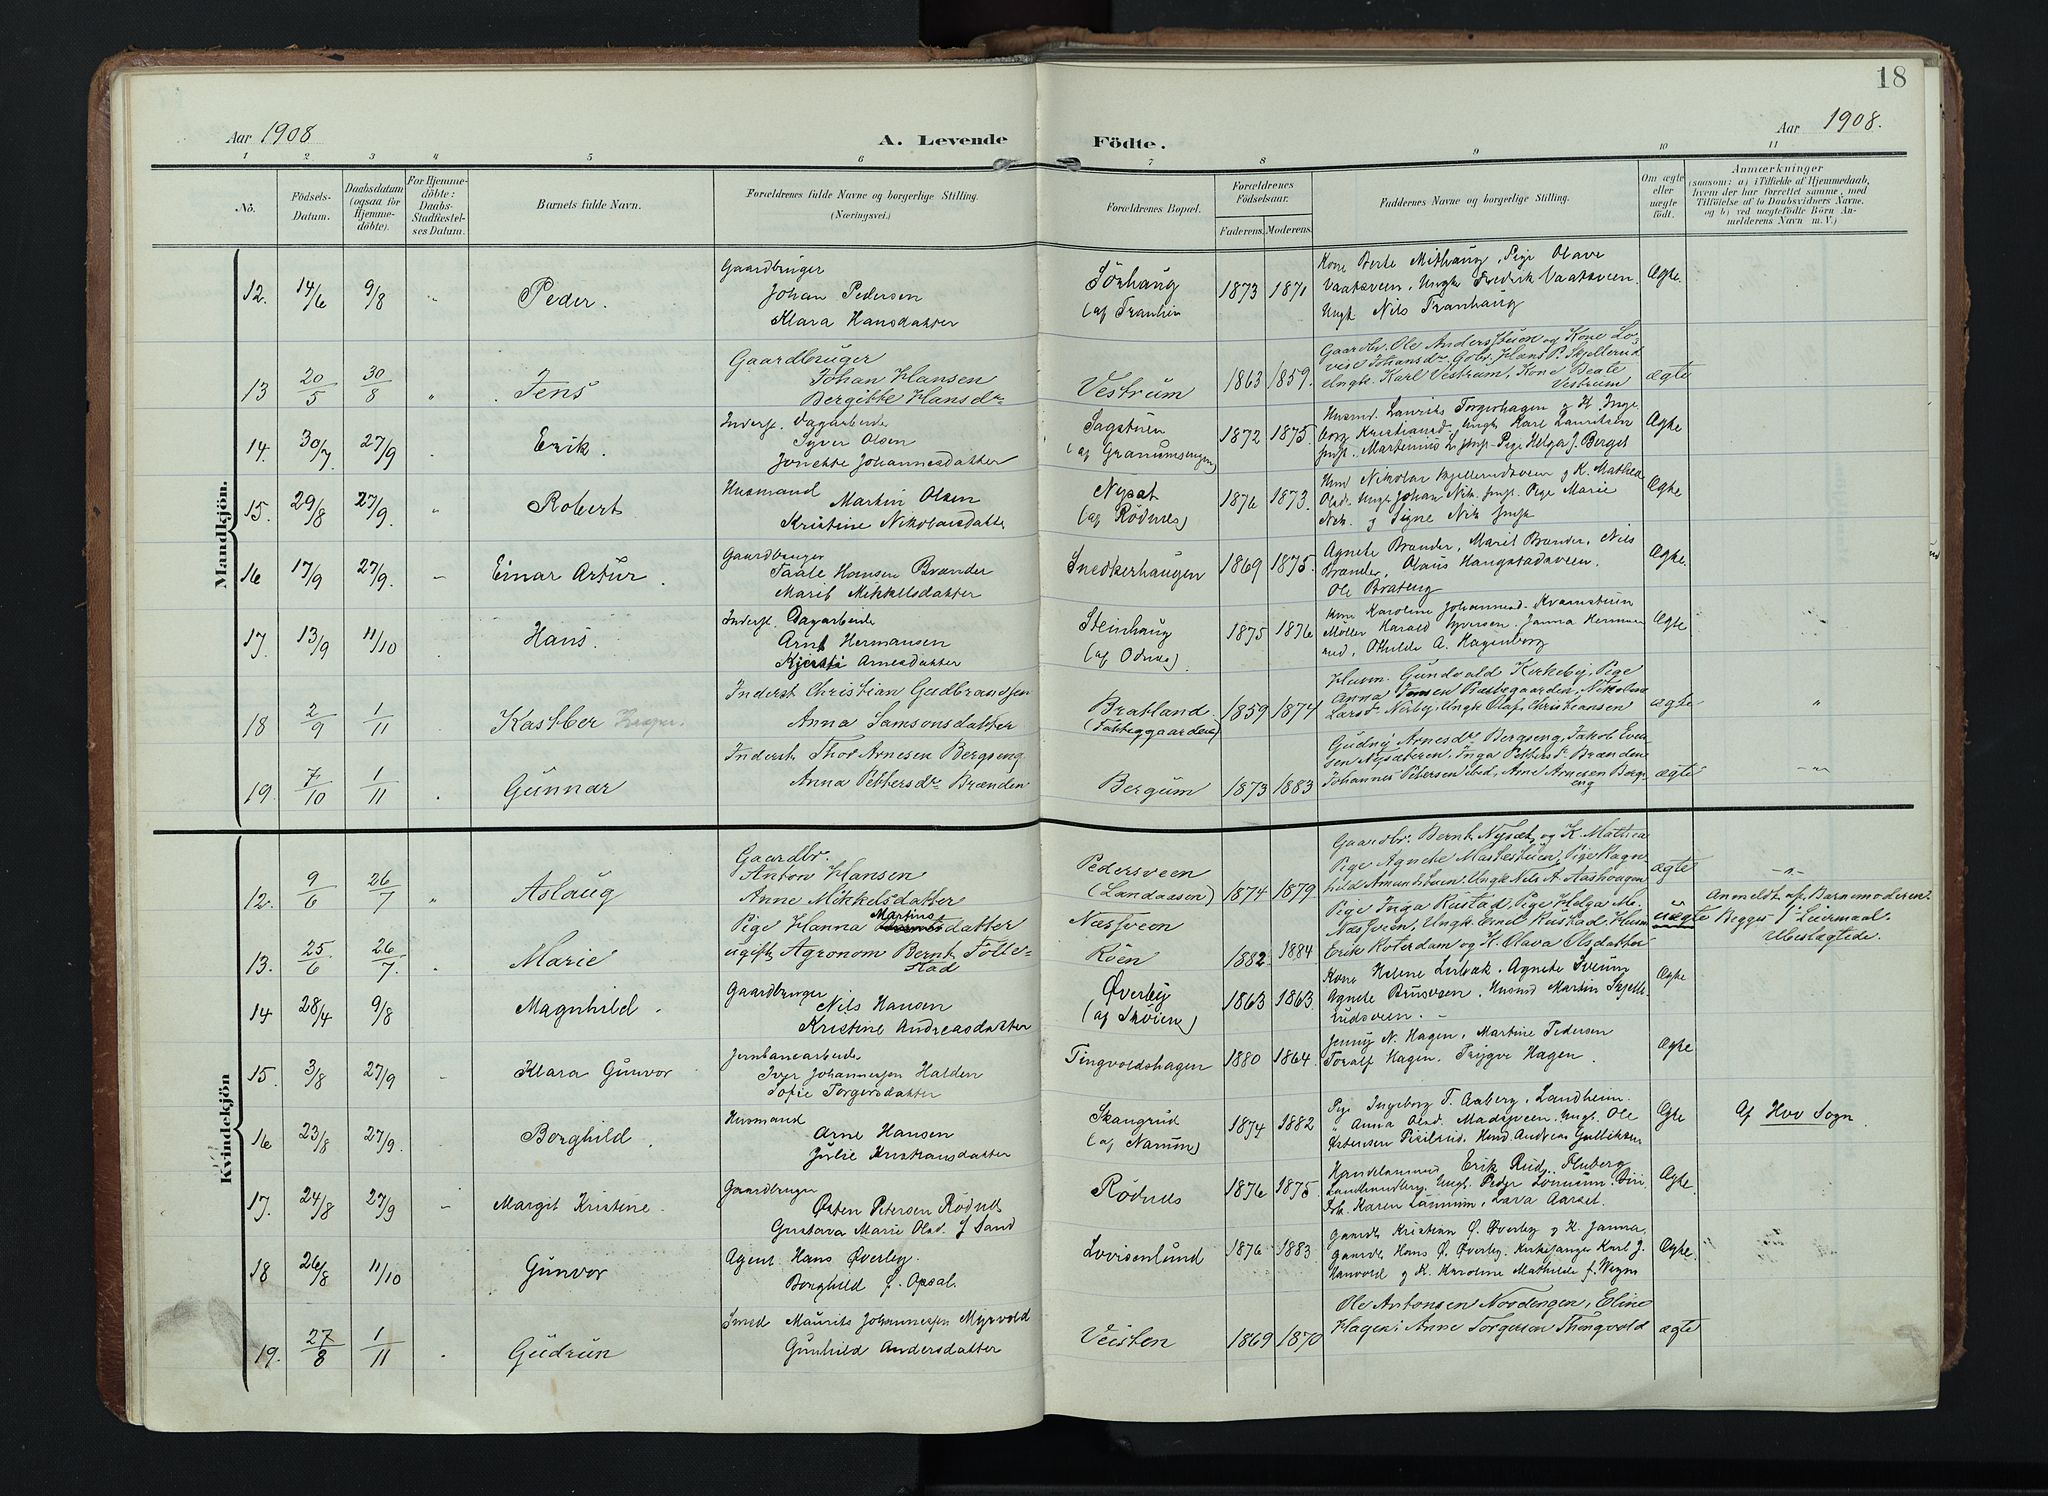 18
Aar 1908
A. Levende
Födte.
Aar 1908.
1 2 3 4 5 6 7 8 9 10 11
No.
Födsels-
Datum.
Daabsdatum
(ogsaa for
Hjemme-
döbte).
For Hjemme-
döbte:
Daabs-
Stadfæstel-
ses Datum.
Barnets fulde Navn.
Forældrenes fulde Navne og borgerlige Stilling.
(Næringsvei.)
Forældrenes Bopæl.
Forældrenes
Födselsaar.
Faderens. Moderens.
Faddernes Navne og borgerlige Stilling.
Om ægte
eller
uægte
födt.
Anmærkninger
(saasom: a) i Tilfælde af Hjemmedaab,
hvem der har forrettet samme, med
Tilföielse af to Daabsvidners Navne.
og b) ved uægtefödte Börn An-
melderens Navn m. V.)
Mandkjön.
12. 14/6 9/8 " Peder.
Gaardbruger
Johan Pedersen
Klara Hansdatter
Sörhaug
(af Tranhein
1873 1871
Kone Berte Mithaug, Pige Olave
Vaatsveen, Ungk Fredrik Vaatsveen.
Ungk Nils Tranhaug
Ægte.
13 20/5 30/8 " Jens
Gaardbruger
Johan Hansen
Bergitte Hansdr
Vestrum
1863 1859.
Gaardbr. Ole Anderstuen og Kone Lo-
vise Johansdr. Gbr. Hans P. Skjellerud
Ungk. Karl Vestrum, Kone Beate
Vestrum
ægte
14. 30/7 27/9 Erik.
Inderst. Dagarbeide
Syver Olsen
Jonette Johannesdatter
Sagstuen
(af Granumsengen)
1872 1875.
Husmd. Laurits Torgerhagen og H. Inge-
borg Kristiansd. Ungk Karl Lauritsen
Martinius L. Pige Helga J. Berget
Ægte
15. 29/8 27/9. " Robert.
Husmand
Martin Olsen
Kristine Nikolaisdatter
Nysæt
(af Rödnes)
1876 1873.
Nikolai Skjellerudsveen og K. Mathea
Olsd. Ungk Johan Nik. Pige Marie
Nik. og Signe Nik
Ægte
16 17/9 27/9. Einar Artur.
Gaardbruger
Taale Hansen Brænder
Marit Mikkelsdatter
Snedkerhaugen
1869 1875.
Agnete Brænder, Marit Brænder, Nils
Brænder, Olaus Haugstadsveen.
Ole Brateng
Ægte.
17. 13/9 11/10 Hans.
Inderst. Dagarbeide
Arnt Hermansen
Kjersti Arnesdatter
Steinhaug
(af Odnes)
1875 1876
Kone Karoline Johannesd. Kvamstuen
Möller Harald Syversen. Janna Herman
rud, Othilde A. Hagenborg
Ægte
18 2/9 1/11 Kastber
Inderst Christian Gudbrandsen
Anna Samsonsdatter
Bratland
1859 1874
Husm. Gundvald Kirkeby, Pige
Anna Jonsen Præstegaarden, Nikoline
Larsdr Nerby, Ungk Olaf Christiansen
ægte
"
19. 7/10 1/11 Gunnar
Inderst Thor Arnesen Bergseng
Anna Pettersdr Brænden
Bergum
1873 1883
Gudny Arnesdr Bergseng, Jakob Even
sen Nysæteren, Inga Pettersdr Brænden
Johannes Petersen ibid, Arne Arnesen Bergs
eng
ægte
-"-
Kvindekjön
12. 9/6 26/7 " Aslaug
Gaardbr.
Anton Hansen
Anne Mikkelsdatter
Pedersveen
(Landaasen)
1874 1879
Gaardbr. Bernt Nysæt og K. Mathea
Pige Agnethe Mastestuen, Pige Ragn
hild Amundstuen Ungk Nils A. Aashaugen
ægte
-"-
13. 25/6 26/7. " Marie
Pige Hanna Martinsdatter
ugift Agronom Bernt Tolle-
stad
Næssveen
Röen
1882. 1884
Pige Inga Rustad, Pige Helga M.
Næssveen, Ungk Ernst Rustad, Husm
Erik Roterdam og K. Olava Olsdatter
uægte
Anmeldt af Barnemoderen.
Begges 1 Leiermaal.
Ubeslægtede.
14 28/4 9/8 Magnhild.
Gaardbruger
Nils Hansen
Kristine Andreasdatter
Øverby
(af Skøien)
1863 1863
Kone Helene Lirbæk, Agnete Sveum
Agnete Brusveen. Husmd Martin Skjelle-
rudsveen.
Ægte
15. 3/8 27/9 Klara Gunvor
Jernbanearbeide
Iver Johannessen Halden
Sofie Torgersdatter
Tingvoldshagen
1880 1864
Jenny N. Hagen, Martine Pedersen
Toralf Hagen. Trygve Hagen
Ægte
16 23/8 27/9. Borghild.
Husmand
Arne Hansen
Julie Kristiansdatter
Skangrud
(af Narum)
1874 1882
Pige Ingeborg T. Aaberg, Landheim.
" Anna Olsd. Madsveen. Ungk. Ole
Østensen. Husmd Andreas Gulliksen
Ægte
Af Hov Sogn
17. 24/8 27/9 Margit Kristine.
Gaardbruger
Østen Petersen Rödnes
Gustava Marie Olsd. f Sand
Rödnes
1876 1875.
Handelsmand Erik Rud. Fluberg
Ungk. Peder Lönnum. Siri
Karen Lönnum, Lava Aarset.
Ægte
18 26/8 11/10 Gunvor
Agent. Hans Øverby.
Borghild f. Opsal.
Lovisenlund
1876 1883
Gaardb Kristian O. Øverby og K. Janna,
Gaardb Hans O. Øverby, Kirkesanger Karl J.
Hanvold og K. Karoline Mathilde f. Wigen
Ægte
19. 27/8 1/11 Gudrun
Smed Maurits Johannessen Myrvold
Gunhild Andersdatter
Veisten
1869 1870
Ole Antonsen Nordengen, Eline
Hagen, Anne Torgersen Thongvold
ægte